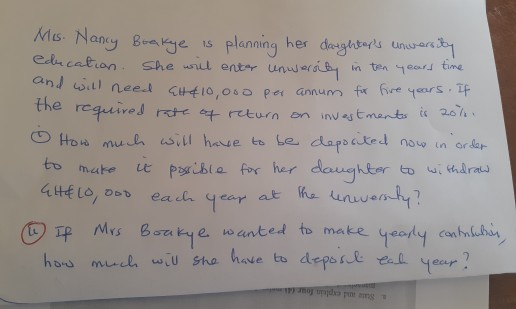 Mrs. Nancy Boakye is planning her daughter's university
education. She will enter university in ten years time
and will need GH¢10,000 per annum for five years. If
the required rate of return on investments is 20%.
(i) How much will have to be deposited now in order
to make it possible for her daughter to withdraw
GH¢10,000 each year at the university?
(ii) If Mrs Boakye wanted to make yearly contribution,
how much will she have to deposit each year?